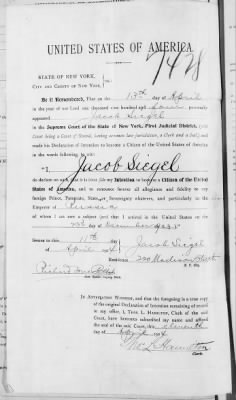 UNITED STATES OF AMERICA.
7478
STATE OF NEW YORK,
CITY AND COUNTY OF NEW YORK, ss.:
Be it Remembered, That on the day of April
in the year of our Lord one thousand nine hundred and four personally
appeared Jacob Siegel
in the Supreme Court of the State of New York, First Judicial District, (said
Court being a Court of Record, having common law jurisdiction, a Clerk and a Seal) and
made his Declaration of Intention to become a Citizen of the United States of America
in the words following, to wit:
I, Jacob Siegel
do declare on oath that it is bona fide my Intention to become a Citizen of the United
States of America, and to renounce forever all allegiance and fidelity to any
foreign Prince, Potentate, State or Sovereignty whatever, and particularly to the
Emperor of Russia
of whom I am now a subject (and that I arrived in the United States on the
day of
Sworn to this 11th day
of April
Jacob Siegel
Residence, 220 Madison Street
N. Y. City.
IN ATTESTATION WHEREOF, and that the foregoing is a true copy
of the original Declaration of Intention remaining of record
in my office, I, THOS. L. HAMILTON, Clerk of the said
Court, have hereunto subscribed my name and affixed
the seal of the said Court, this eleventh
day of April
Thos. L. Hamilton
Clerk.